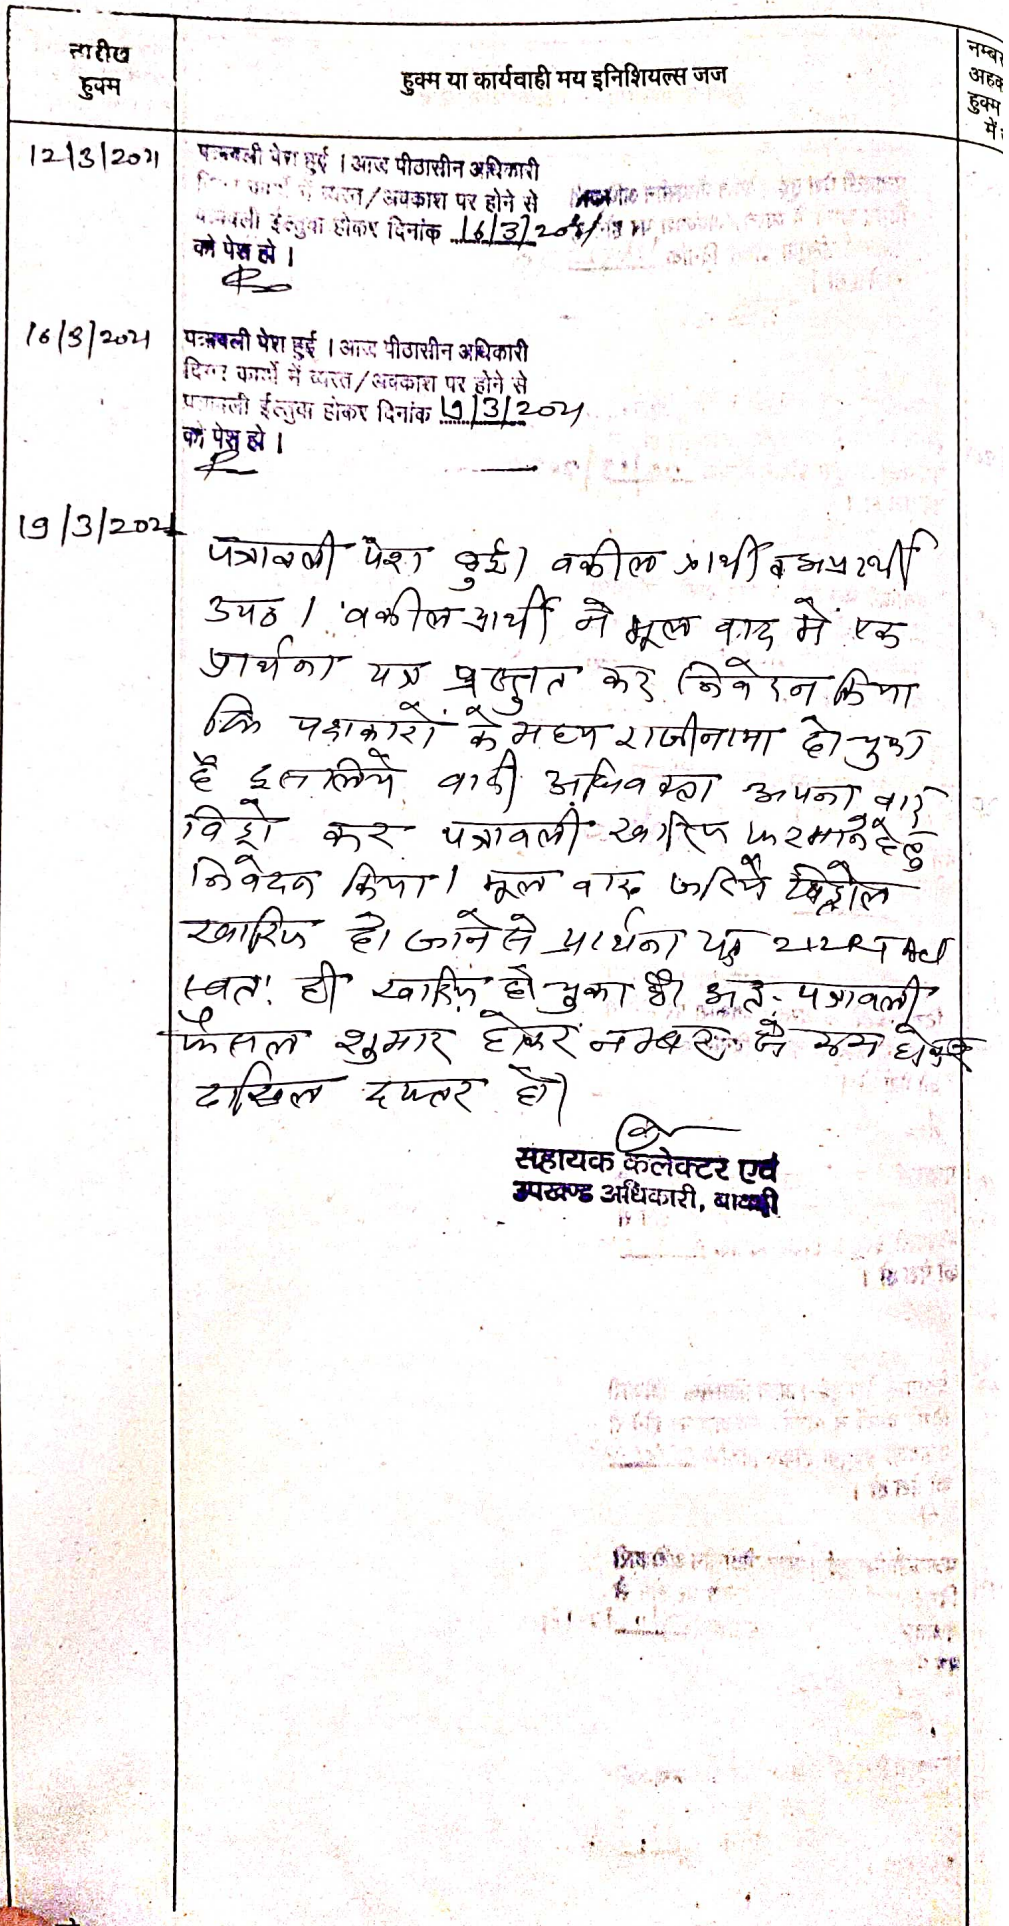 तारीख
हुक्म
हुक्म या कार्यवाही मय इनिशियल्स जज
नम्बर
अहक
हुक्म
में
12/3/2021
पत्रावली पेश हुई । आज पीठासीन अधिकारी
व्यस्त/अवकाश पर होने से
पत्रावली ईल्तुवा होकर दिनांक 16/3/2021
को पेश हो ।
16/3/2021
पत्रावली पेश हुई । आज पीठासीन अधिकारी
दिगर कार्यो में व्यस्त/अवकाश पर होने से
पत्रावली ईल्तुवा होकर दिनांक 19/3/2021
को पेश हो ।
19/3/2021
पत्रावली पेश हुई। वकील प्रार्थी व अप्रार्थी
उपठ। वकील प्रार्थी ने मूल वाद में एक
प्रार्थना पत्र प्रस्तुत कर निवेदन किया
कि पक्षकारों के मध्य राजीनामा हो चुका
है इसलिये वादी अधिवक्ता अपना वाद
विड्रो कर पत्रावली खारिज फरमाने हेतु
निवेदन किया। मूल वाद जरिये विड्रोल
खारिज हो जाने से प्रार्थना पत्र
स्वतः ही खारिज हो चुका है। अतः पत्रावली
फैसल शुमार होकर नम्बर से कम होकर
दाखिल दफ्तर हो।
सहायक कलेक्टर एवं
उपखण्ड अधिकारी,